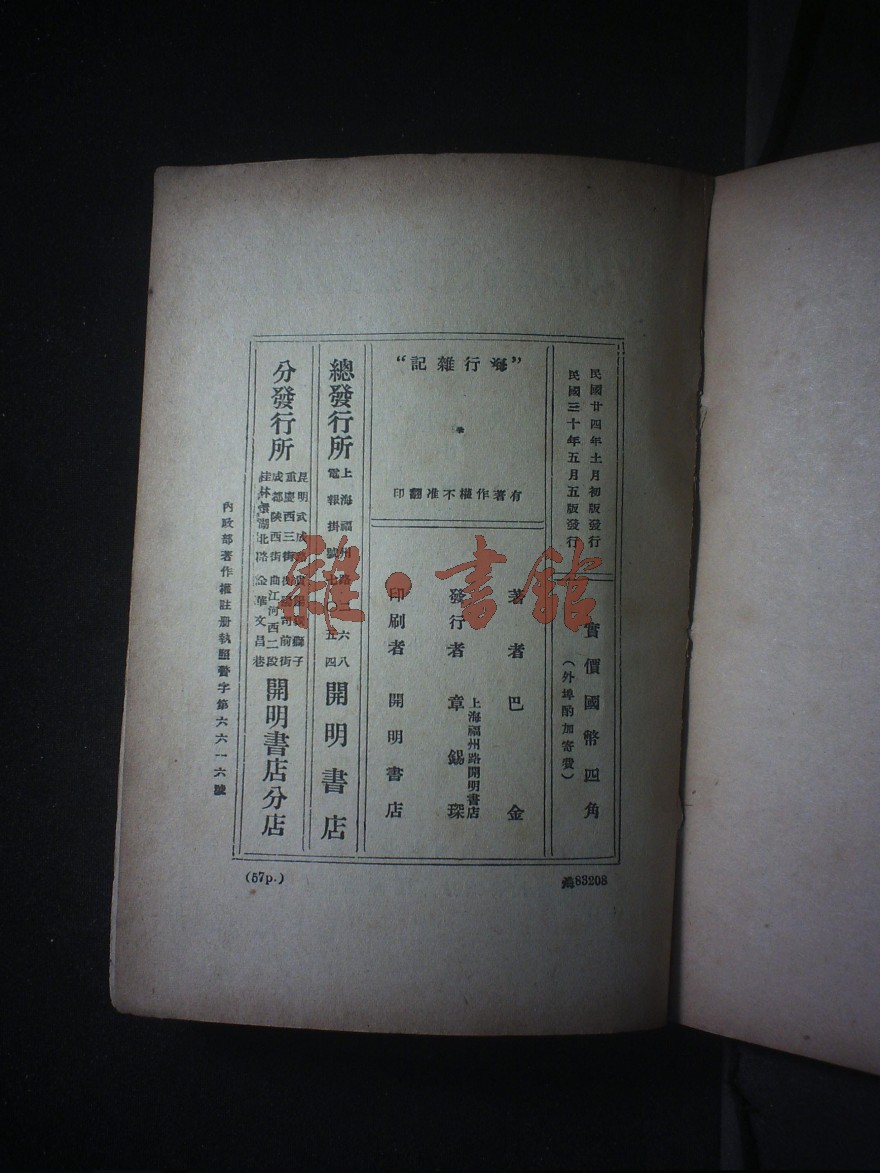 民國廿四年十一月初版發行
民國三十年五月五版發行
實價國幣四角
(外埠酌加寄費)
“海行雜記”
有著作權不准翻印
著者 巴金
發行者 章錫琛
上海福州路開明書店
印刷者 開明書店
總發行所
上海福州路二六八
電報掛號七〇五四
開明書店
分發行所
昆明武成路
重慶西三街
成都陝西街
桂林環湖北路
曲江河西二段
金華文昌巷
開明書店分店
內政部著作權註册執照警字第六六一六號
(57p.)
83208
雜·書館